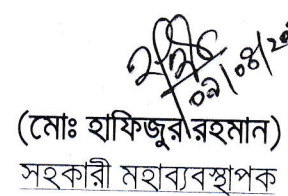 ০৯/০৪/২০
(মোঃ হাফিজুর রহমান)
সহকারী মহাব্যবস্থাপক